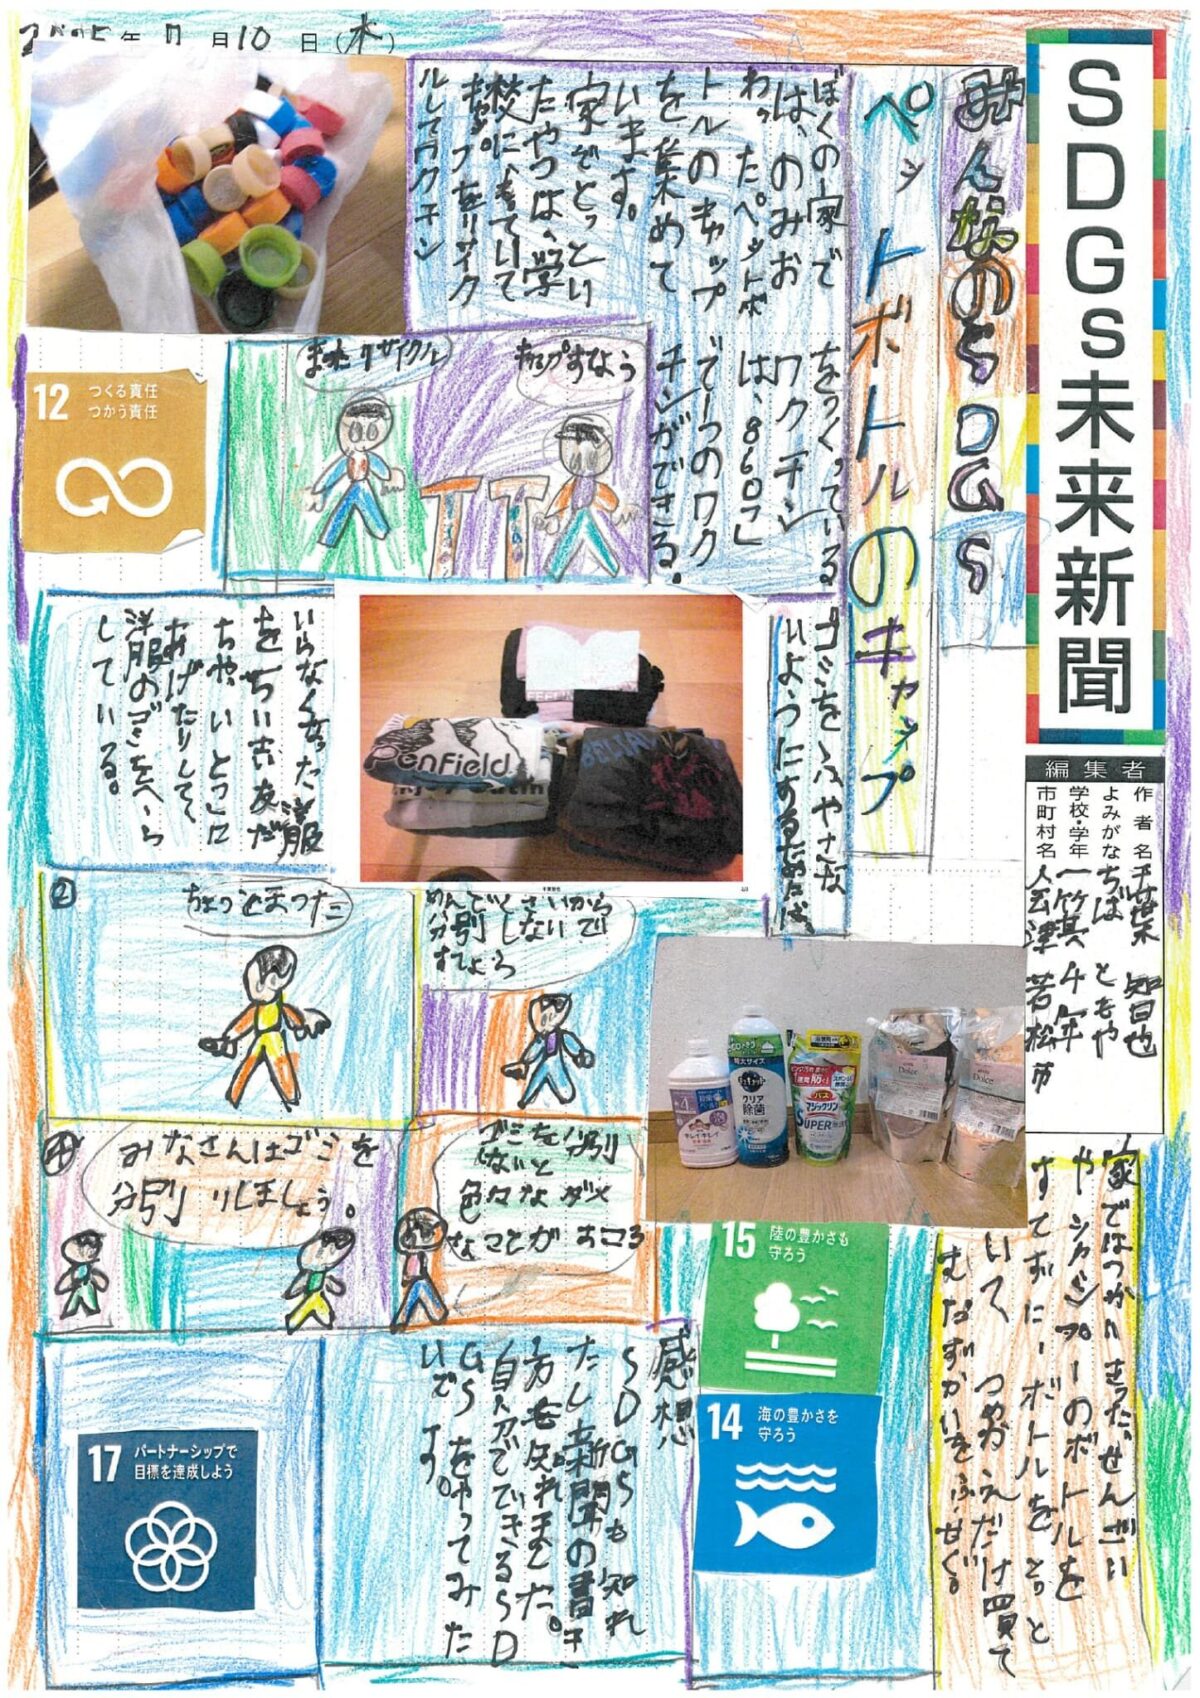 年 月10日(木)
SDGs未来新聞
みんなのSDGS
ペットボトルのキャップ
編集者
作者名 千葉 智也
よみがな ちば ともや
学校・学年 一箕 4年
市町村名 会津若松市
ぼくの家で
は、のみお
わったペットボ
トルのキャップ
を集めて
います。
家でとってい
たやつは、学
校にもっていて
キャップをリサイク
ルしてワクチン
をつくっている
ワクチン
は、860コ
で一つのワク
チンができる。
またリサイクル
キャップすてよう
12 つくる責任
つかう責任
ゴミをふやさな
いようにするためには、
いらなくなった洋服
を
ちゃいとこに
あげたりして、
洋服のゴミをへら
している。
Penfield
②
ちょっとまった
めんどくさいから
分別しないで
すてよう
④
みなさんはゴミを
分別しましょう。
ゴミを分別
しないと
色々なダメ
なことがおこる
キュキュット
クリア
除菌
特大サイズ
キレイキレイ
バス
マジックリン
SUPER
Dolce
Dolce
家ではつかいきったせんざい
やシャンプーのボトルを
すてずに、ボトルをとっと
いて、つめかえだけ買って
むだずかいをふせぐ。
15 陸の豊かさも
守ろう
14 海の豊かさを
守ろう
17 パートナーシップで
目標を達成しよう
感想
SDGsも知れ
たし新聞の書き
方も知れました。
自分でできるSD
Gsをやってみた
いです。